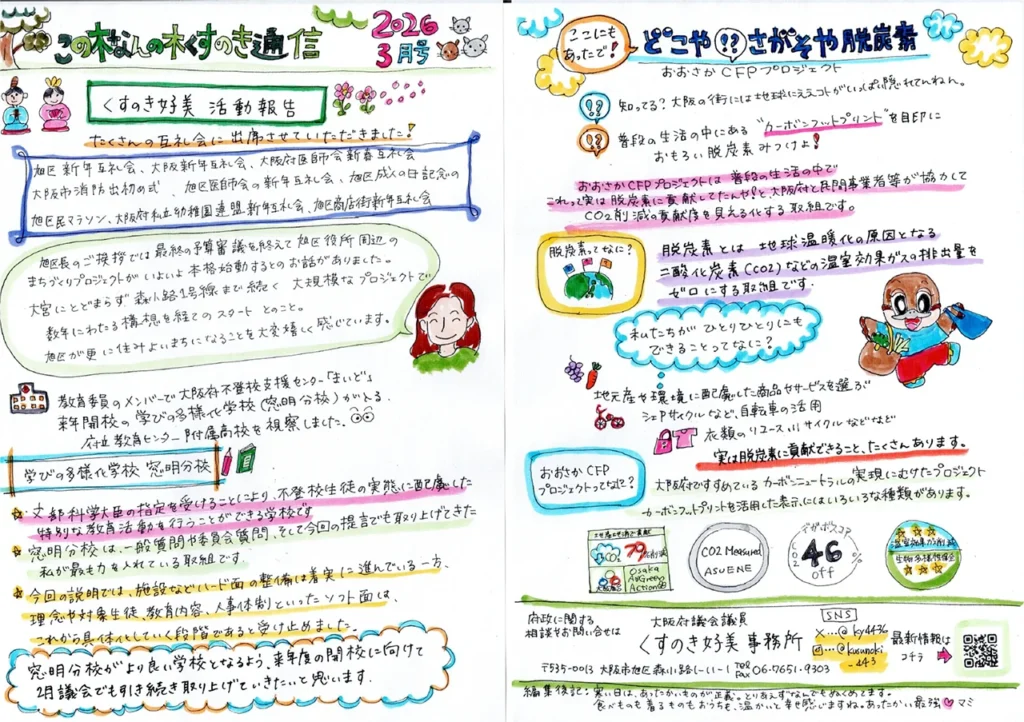 この木なんの木くすのき通信
2026
3月号
くすのき好美 活動報告
たくさんの互礼会に出席させていただきました!
旭区新年互礼会、大阪新年互礼会、大阪府医師会新春互礼会
大阪市消防出初め式、旭区医師会の新年互礼会、旭区成人の日記念の
旭区民マラソン、大阪府私立幼稚園連盟新年互礼会、旭商店街新年互礼会
旭区長のご挨拶では最終の予算審議を終えて旭区役所周辺の
まちづくりプロジェクトがいよいよ本格始動するとのお話がありました。
大宮にとどまらず森小路1号線まで続く大規模なプロジェクトで
数年にわたる構想を経てのスタートとのこと。
旭区が更に住みよいまちになることを大変嬉しく感じています。
教育委員のメンバーで大阪府不登校支援センター「まいど」
来年開校の学びの多様化学校(窓明分校)が入る
府立教育センター附属高校を視察しました。
学びの多様化学校 窓明分校
文部科学大臣の指定を受けることにより、不登校生徒の実態に配慮した
特別な教育活動を行うことができる学校です
窓明分校は、一般質問や委員会質問、そして今回の提言でも取り上げてきた
私が最も力を入れている取組です。
今回の説明では、施設などハード面の整備は着実に進んでいる一方、
理念や対象生徒、教育内容、人事体制といったソフト面は、
これから具体化していく段階であると受け止めました。
窓明分校がより良い学校となるよう、来年度の開校に向けて
2月議会でも引き続き取り上げていきたいと思います。
ここにもあったで!
どこや!?さがそや脱炭素
おおさかCFPプロジェクト
!? 知ってる?大阪の街には地球にええコトがいっぱい隠れてんねん。
!? 普段の生活の中にある"カーボンフットプリント"を目印に
おもろい脱炭素みつけよ!
おおさかCFPプロジェクトは普段の生活の中で
これって実は脱炭素に貢献してたんや!と、大阪府と民間事業者等が協力して
CO2削減の貢献度を見える化する取組です。
脱炭素ってなに?
脱炭素とは 地球温暖化の原因となる
二酸化炭素(CO2)などの温室効果ガスの排出量を
ゼロにする取組です.
私たちがひとりひとりにも
できることってなに?
地元産や環境に配慮した商品やサービスを選ぶ
シェアサイクルなど、自転車の活用
衣類のリユース、リサイクルなどなど
実は脱炭素に貢献できること、たくさんあります。
おおさかCFP
プロジェクトってなに?
大阪府ですすめているカーボンニュートラルの実現にむけたプロジェクト
カーボンフットプリントを活用した表示にはいろいろな種類があります。
CO2
79
Osaka
AllGreen
Action
CO2 Measured
ASUENE
デカボスコア
CO2
46
%
off
温室効果ガス削減
生物多様性保全
府政に関する
相談やお問い合せは
大阪府議会議員
くすのき好美 事務所
〒535-0013 大阪市旭区森小路1-11-1 TEL FAX 06-7651-9303
SNS
X…@ky4436
…@kusunoki
-443
最新情報は
コチラ
編集後記:寒い日は、あったかいものが正義。とりあえずなんでもぬくめてます。
食べものも着るものもおうちも、温かいと幸せ感じますね。あったかい最強♥マミ